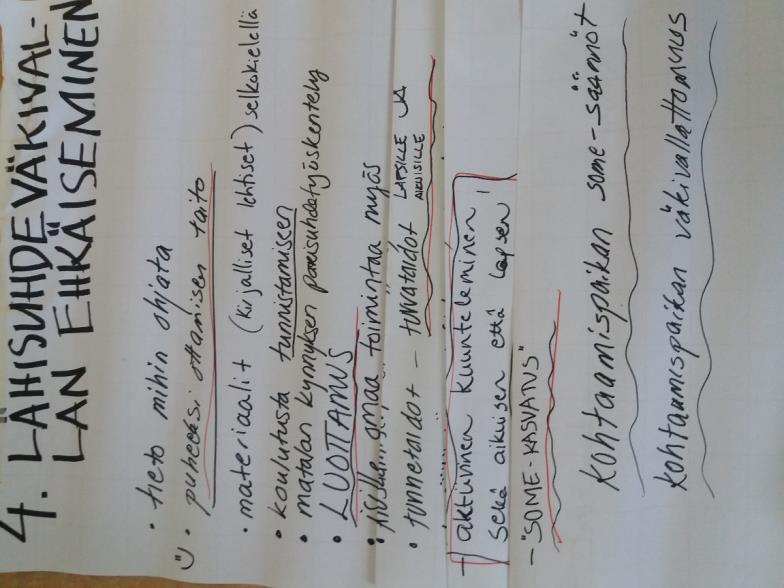 4. LÄHISUHDEVÄKIVAL-
LAN EHKÄISEMINEN
• tieto mihin ohjata
• puheeksi ottamisen taito
• materiaalit (kirjalliset lehtiset) selkokielellä
• koulutusta tunnistamiseen
• matalan kynnyksen parisuhdetyöskentely
• LUOTTAMUS
• omaa toimintaa myös
• tunnetaidot – turvataidot LAPSILLE JA
AIKUISILLE
– aktiivinen kuunteleminen,
sekä aikuisen että lapsen
– "SOME-KASVATUS"
kohtaamispaikan some-säännöt
kohtaamispaikan väkivallattomuus